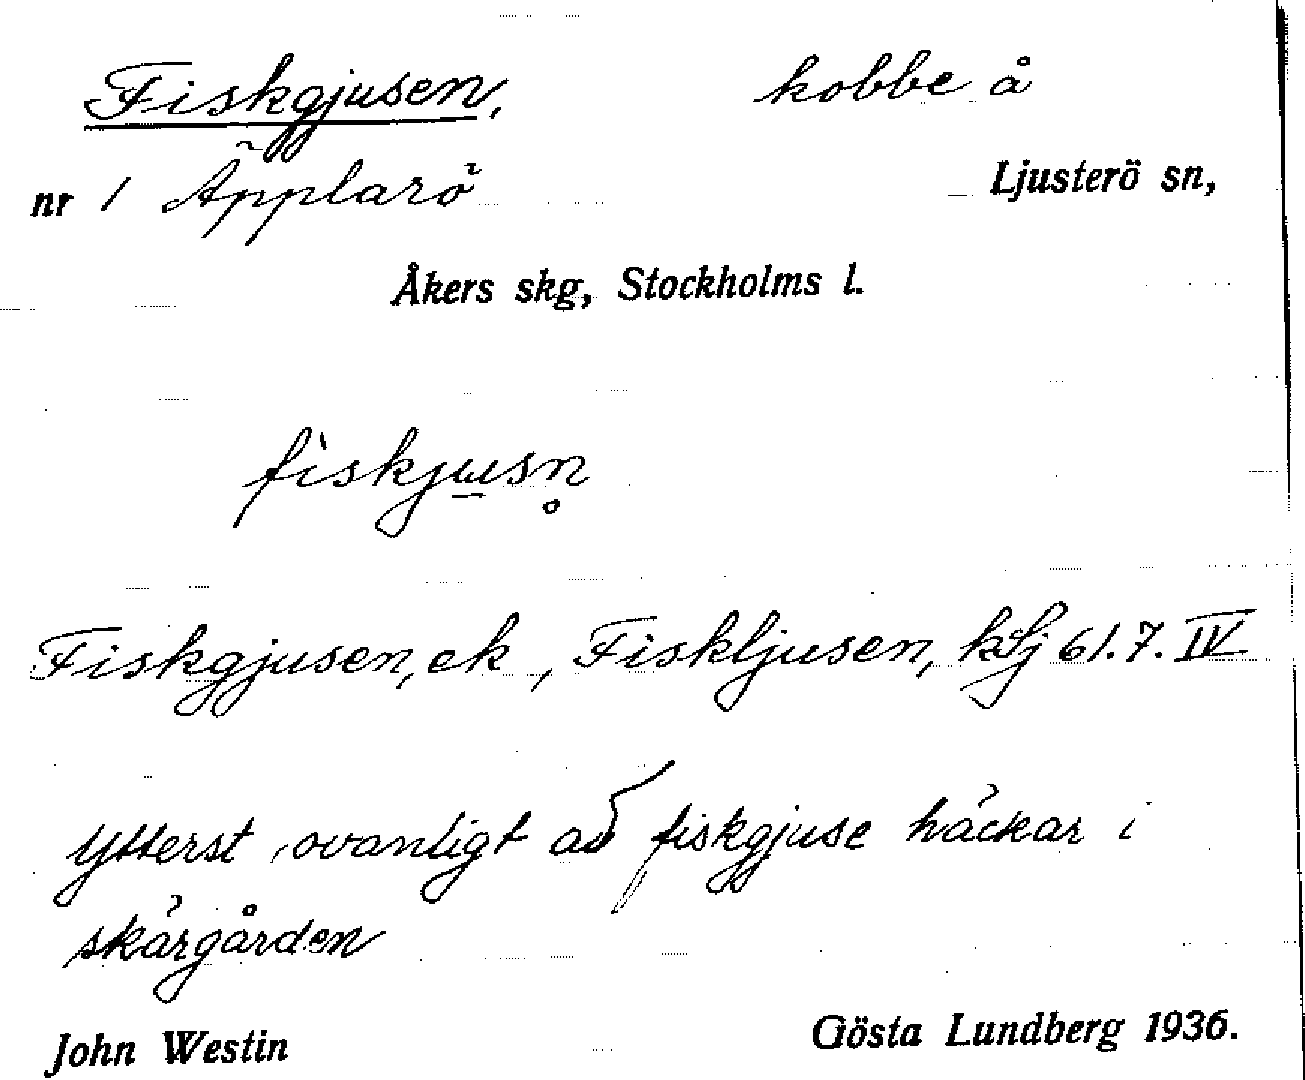 Fiskgjusen, kobbe å
nr 1 Äpplarö Ljusterö sn,
Åkers skg, Stockholms l.
fiskjusn̥
Fiskgjusen, ek, Fiskljusen, kSj 61.7.IV
Ytterst ovanligt att fiskgjuse häckar i
skärgården
John Westin Gösta Lundberg 1936.